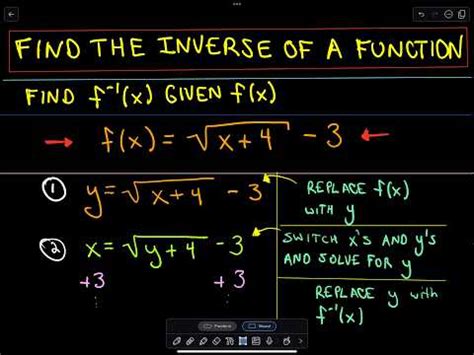 FIND THE INVERSE OF A FUNCTION
FIND f⁻¹(x) GIVEN f(x)
→ f(x) = √x+4 - 3 ←
① y = √x+4 - 3
REPLACE f(x)
WITH y
② x = √y+4 - 3
+3 +3
SWITCH x's AND y's
AND SOLVE FOR y
REPLACE y with
f⁻¹(x)